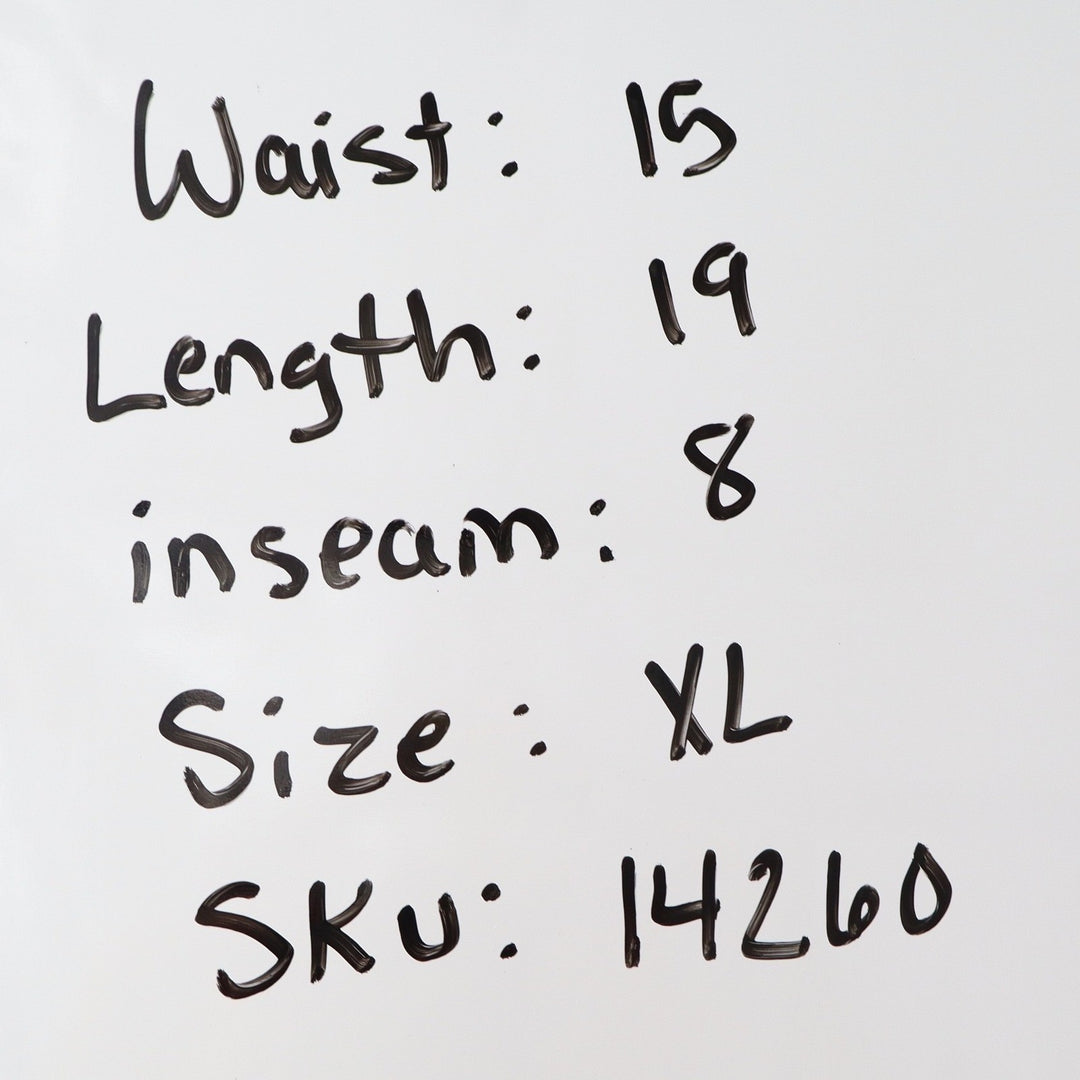 Waist: 15
Length: 19
inseam: 8
Size: XL
SKU: 14260